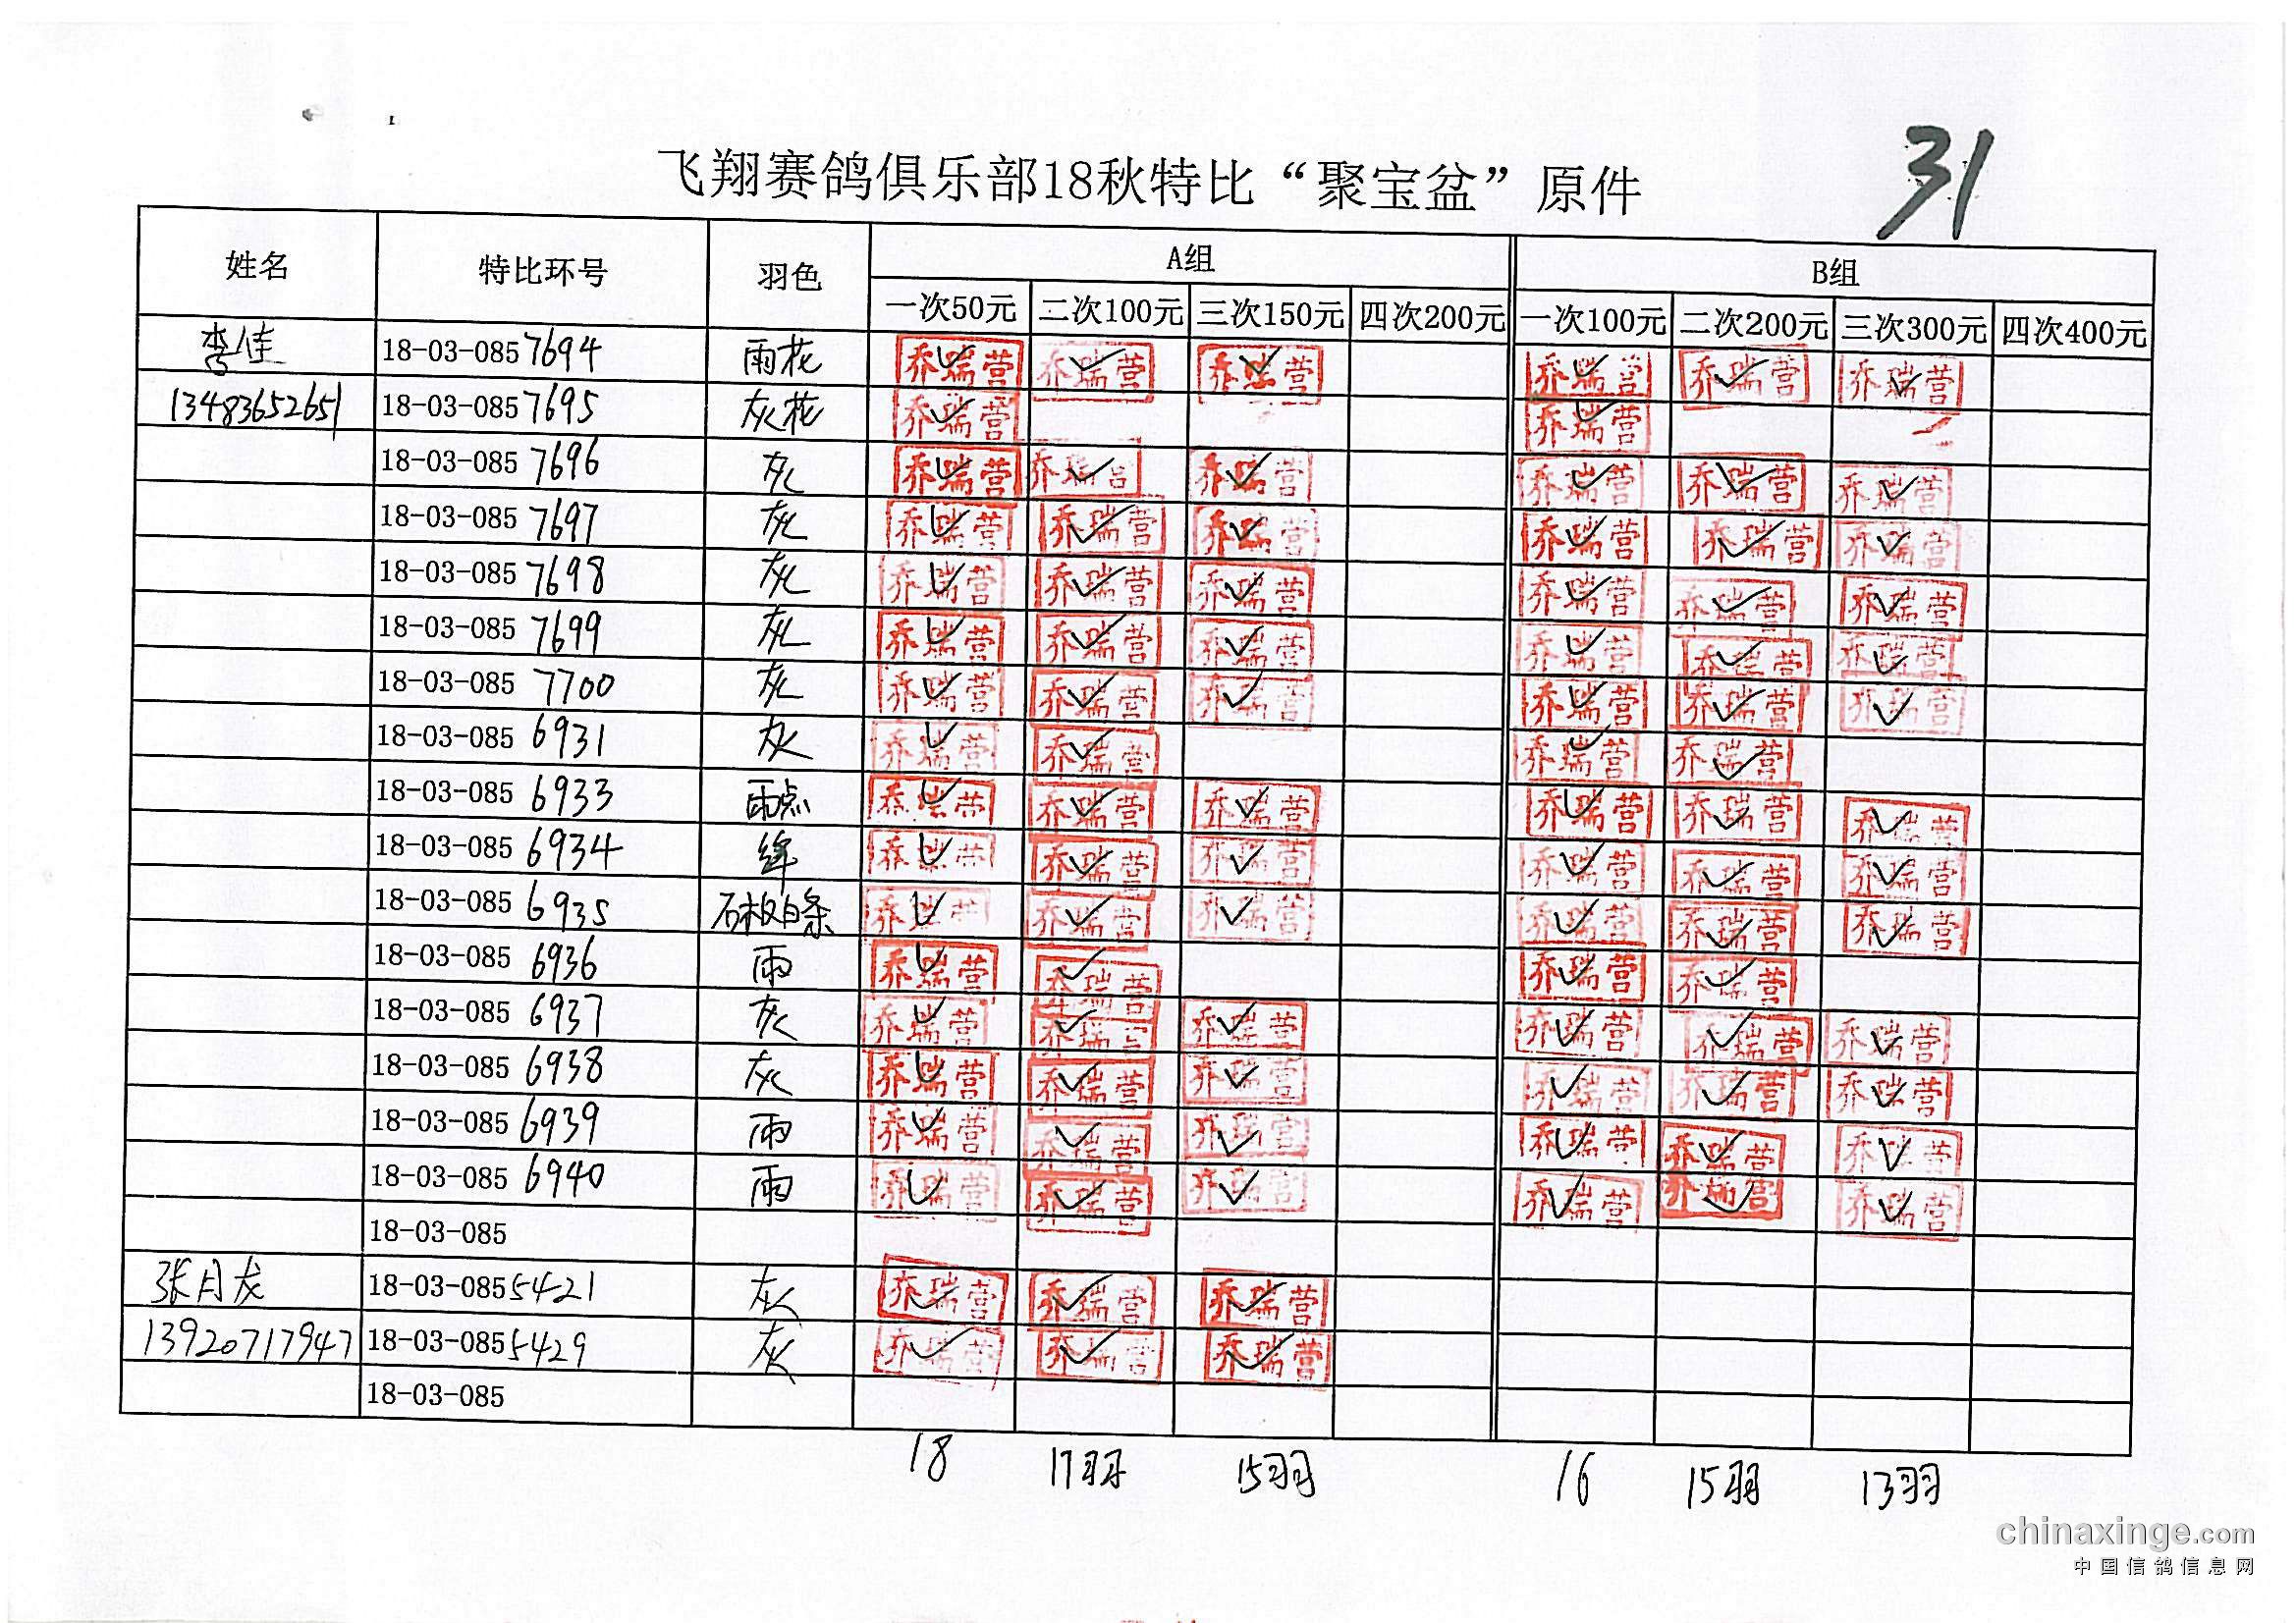 31
飞翔赛鸽俱乐部18秋特比“聚宝盆”原件
姓名 特比环号 羽色 A组 B组
一次50元 二次100元 三次150元 四次200元 一次100元 二次200元 三次300元 四次400元
李佳 18-03-085 7694 雨花 乔瑞营 乔瑞营 乔瑞营 乔瑞营 乔瑞营 乔瑞营
13483652651 18-03-085 7695 灰花 乔瑞营 乔瑞营
18-03-085 7696 灰 乔瑞营 乔瑞营 乔瑞营 乔瑞营 乔瑞营 乔瑞营
18-03-085 7697 灰 乔瑞营 乔瑞营 乔瑞营 乔瑞营 乔瑞营 乔瑞营
18-03-085 7698 灰 乔瑞营 乔瑞营 乔瑞营 乔瑞营 乔瑞营 乔瑞营
18-03-085 7699 灰 乔瑞营 乔瑞营 乔瑞营 乔瑞营 乔瑞营 乔瑞营
18-03-085 7700 灰 乔瑞营 乔瑞营 乔瑞营 乔瑞营 乔瑞营 乔瑞营
18-03-085 6931 灰 乔瑞营 乔瑞营 乔瑞营 乔瑞营
18-03-085 6933 雨点 乔瑞营 乔瑞营 乔瑞营 乔瑞营 乔瑞营 乔瑞营
18-03-085 6934 绛 乔瑞营 乔瑞营 乔瑞营 乔瑞营 乔瑞营 乔瑞营
18-03-085 6935 石板白条 乔瑞营 乔瑞营 乔瑞营 乔瑞营 乔瑞营 乔瑞营
18-03-085 6936 雨 乔瑞营 乔瑞营 乔瑞营 乔瑞营
18-03-085 6937 灰 乔瑞营 乔瑞营 乔瑞营 乔瑞营 乔瑞营 乔瑞营
18-03-085 6938 灰 乔瑞营 乔瑞营 乔瑞营 乔瑞营 乔瑞营 乔瑞营
18-03-085 6939 雨 乔瑞营 乔瑞营 乔瑞营 乔瑞营 乔瑞营 乔瑞营
18-03-085 6940 雨 乔瑞营 乔瑞营 乔瑞营 乔瑞营 乔瑞营 乔瑞营
18-03-085
张月龙 18-03-085 5421 灰 乔瑞营 乔瑞营 乔瑞营
13920717947 18-03-085 5429 灰 乔瑞营 乔瑞营 乔瑞营
18-03-085
18 17羽 15羽 16 15羽 13羽
chinaxinge.com
中国信鸽信息网